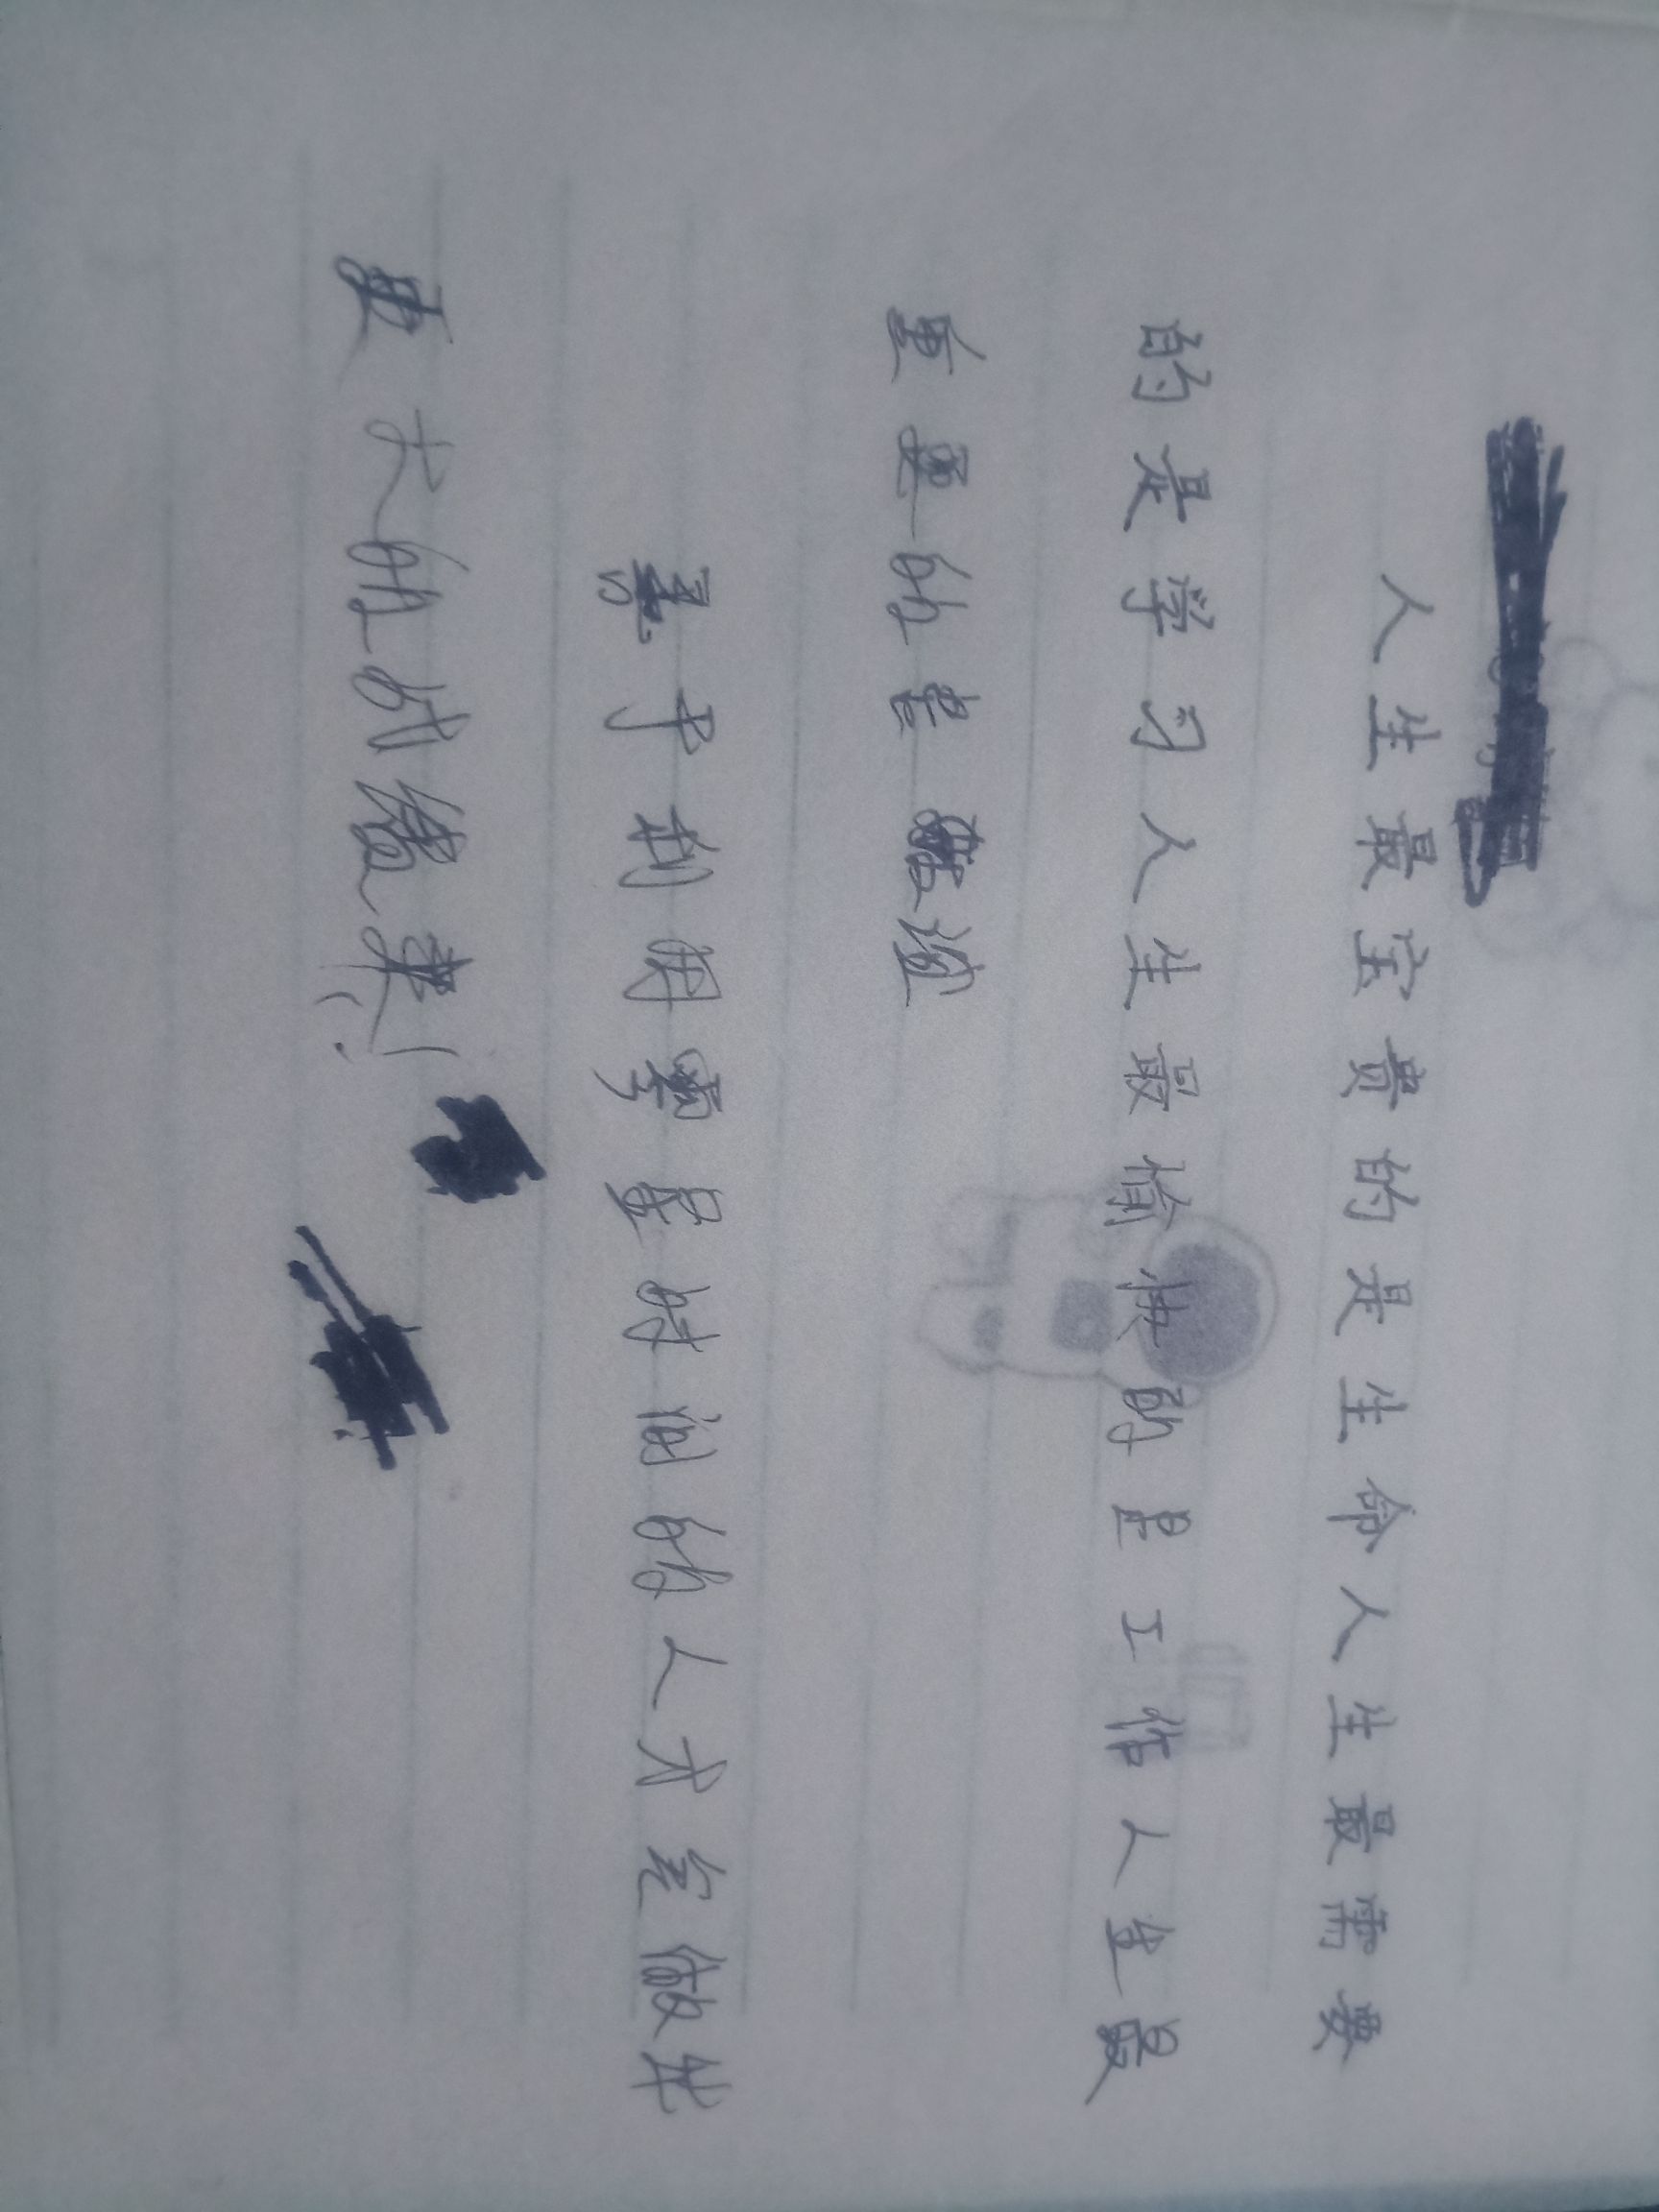 人生最宝贵的是生命人生最需要
的是学习人生最愉快的是工作人生最
重要的是友谊
善于利用零星时间的人才会做出
更大的成绩来!